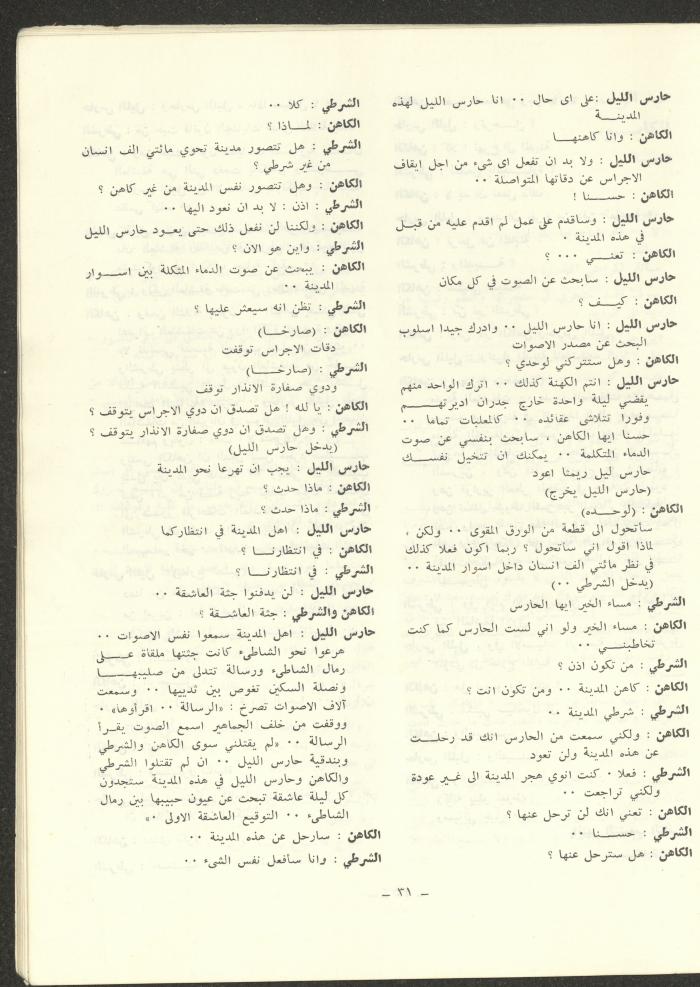 حارس الليل : على اى حال ٠٠ انا حارس الليل لهذه
المدينـــة
الكاهن : وانا كاهنهــا
حارس الليل : ولا بد ان تفعل اى شىء من اجل ايقاف
الاجراس عن دقاتها المتواصلة ٠٠
الكاهن : حســـنا !
حارس الليل : وساقدم على عمل لم اقدم عليه من قبـل
في هذه المدينة ٠
الكاهن : تعنـــي ٠٠٠ ؟
حارس الليل : سابحث عن الصوت في كل مكان
الكاهن : كيـــف ؟
حارس الليل : انا حارس الليل ٠٠ وادرك جيدا اسلوب
البحث عن مصدر الاصوات
الكاهن : وهل ستتركني لوحدي ؟
حارس الليل : انتم الكهنة كذلك ٠٠ اترك الواحد منهم
يفضي ليلة واحدة خارج جدران اديرتهــــم
وفورا تتلاشى عقائده ٠٠ كالمعلبات تماما ٠٠
حسنا ايها الكاهن ، سابحث بنفسي عن صوت
الدماء المتكلمة ٠٠ يمكنك ان تتخيل نفســـك
حارس ليل ريثما اعود
(حارس الليل يخرج)
الكاهن : (لوحـــده)
ساتحول الى قطعة من الورق المقوى ٠٠ ولكن ،
لماذا اقول اني ساتحول ؟ ربما اكون فعلا كذلك
في نظر مائتي الف انسان داخل اسوار المدينة ٠٠
(يدخل الشرطي ٠٠)
الشرطي : مساء الخير ايها الحارس
الكاهن : مساء الخير ولو اني لست الحارس كما كنت
تخاطبنـــي ٠٠
الشرطي : من تكون اذن ؟
الكاهن : كاهن المدينة ٠٠ ومن تكون انت ؟
الشرطي : شرطي المدينة ٠٠
الكاهن : ولكني سمعت من الحارس انك قد رحلـــت
عن هذه المدينة ولن تعود
الشرطي : فعلا ٠ كنت انوي هجر المدينة الى غـير عودة
ولكني تراجعت ٠٠
الكاهن : تعني انك لن ترحل عنها ؟
الشرطي : حســـنا ٠٠
الكاهن : هل سترحل عنها ؟
الشرطي : كلا ٠٠
الكاهن : لمـــاذا ؟
الشرطي : هل تتصور مدينة تحوي مائتي الف انسان
من غير شرطي ؟
الكاهن : وهل تتصور نفس المدينة من غير كاهن ؟
الشرطي : اذن : لا بد ان نعود اليها ٠٠
الكاهن : ولكننا لن نفعل ذلك حتى يعـود حارس الليل
الشرطي : واين هو الان ؟
الكاهن : يبحث عن صوت الدماء المتكلة بين اســـوار
المدينة ٠٠
الشرطي : تظن انه سيعثر عليها ؟
الكاهن : (صارخـــا)
دقات الاجراس توقفت
الشرطي : (صارخـــا)
ودوي صفارة الانذار توقف
الكاهن : يا لله ! هل تصدق ان دوي الاجراس يتوقف ؟
الشرطي : وهل تصدق ان دوي صفارة الانذار يتوقف ؟
(يدخل حارس الليل)
حارس الليل : يجب ان تهرعا نحو المدينة
الكاهن : ماذا حدث ؟
الشرطي : ماذا حدث ؟
حارس الليل : اهل المدينة في انتظاركما
الكاهن : في انتظارنـــا ؟
الشرطي : في انتظارنـــا ؟
حارس الليل : لن يدفنوا جثة العاشقة ٠٠
الكاهن والشرطي : جثة العاشـــقة ؟
حارس الليل : اهل المدينة سمعوا نفس الاصوات ٠٠
هرعوا نحو الشاطىء كانت جثتها ملقاة عــــلى
رمال الشاطىء ورسالة تتدلى من صليبهـــــا
ونصلة السكين تغوص بين ثدييها ٠٠ وسمعت
آلاف الاصوات تصرخ : «الرسالة ٠٠ اقرأوها» ٠
ووقفت من خلف الجماهير اسمع الصوت يقـرأ
الرسالة ٠٠ «لم يقتلني سوى الكاهن والشرطي
وبندقية حارس الليل ٠٠ ان لم تقتلوا الشرطي
والكاهن وحارس الليل في هذه المدينة ستجدون
كل ليلة عاشقة تبحث عن عيون حبيبها بين رمال
الشاطىء ٠٠ التوقيع العاشقة الاولى ٠»
الكاهن : سارحل عن هذه المدينة ٠٠
الشرطي : وانا سأفعل نفس الشىء ٠٠
– ٣١ –